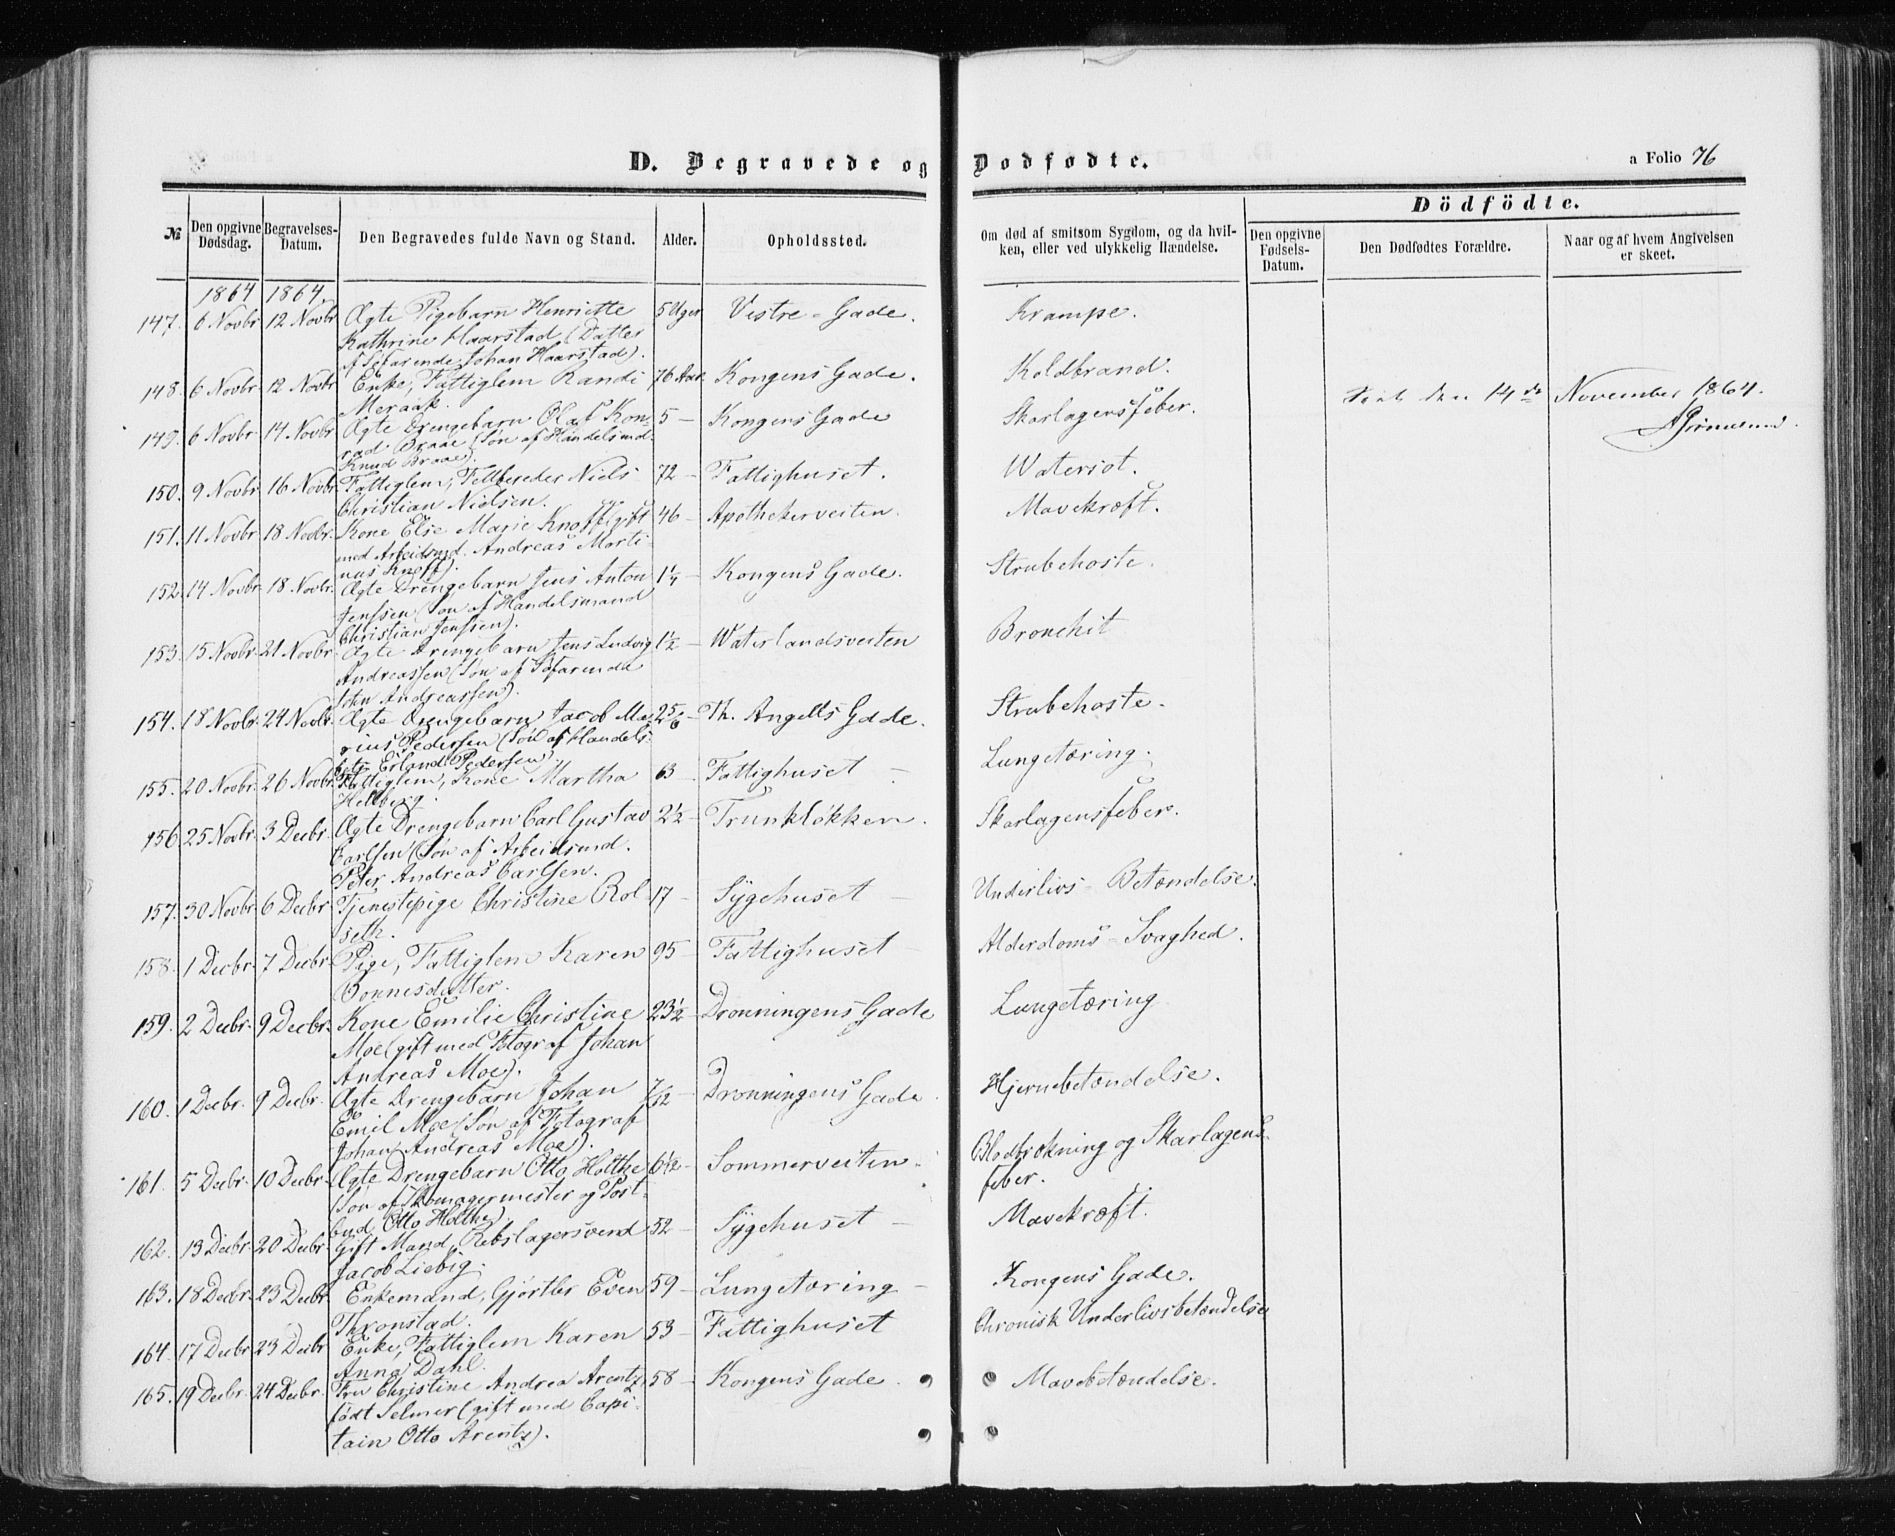 D. Begravede og Dødfødte.
a Folio 76
Dödfödte.
№
Den opgivne Dødsdag.
Begravelses-Datum.
Den Begravedes fulde Navn og Stand.
Alder.
Opholdssted.
Om død af smitsom Sygdom, og da hvil-
ken, eller ved ulykkelig Hændelse.
Den opgivne Fødsels-Datum.
Den Dødfødtes Forældre.
Naar og af hvem Angivelsen
er skeet.
1864 1864
147. 6 Novbr 12 Novbr Ægte Pigebarn Henriette 5 Uger Vestre-Gade. Krampe.
Kathrine Haarstad (Datter
af Søfarende Johan Haarstad).
148. 6 Novbr. 12 Novbr Enke, Fattiglem Randi 76 Aar. Kongens Gade. Koldbrand.
Meraak.
den 14de November 1864.
149. 6 Novbr 14 Novbr Ægte Drengebarn Olaf Kon- 5 - Kongens Gade Skarlagensfeber.
rad Braae (Søn af Handelsmd.
Knud Braae).
150. 9 Novbr. 16 Novbr. Fattiglem, Feldbereder Niels 72 - Fattighuset. Watersot.
Christian Nielsen.
151. 11 Novbr 18 Novbr. Kone Else Marie Knoff (gift 46 - Apothekerveiten. Mavekræft.
med Arbeidsmd. Andreas Marti-
nus Knoff).
152. 14 Novbr. 18 Novbr. Ægte Drengebarn Jens Anton 1¼ - Kongens Gade. Strubehoste.
Jenssen (Søn af Handelsmand
Christian Jenssen).
153. 15 Novbr. 21 Novbr. Ægte Drengebarn Jens Ludvig 1½ - Waterlandsveiten Bronchit
Andreassen (Søn af Søfarende
John Andreassen).
154. 18 Novbr. 24 Novbr. Ægte Drengebarn Jacob Ma- 2 5/6 - Th. Angells Gade. Strubehoste.
rius Pedersen (Søn af Handels-
Erland Pedersen).
155. 20 Novbr. 26 Novbr. Fattiglem, Kone Martha 63 - Fattighuset - Lungetæring.
Hellberg.
156. 25 Novbr. 3 Decbr. Ægte Drengebarn Carl Gustav 2½ - Trunkløkken. Skarlagensfeber.
Carlsen (Søn af Arbeidsmd.
Peter Andreas Carlsen.
157. 30 Novbr. 6 Decbr. Tjenestepige Christine Rol- 17 - Sygehuset - Underlivs-Betændelse.
seth.
158. 1 Decbr. 7 Decbr. Pige, Fattiglem Karen 95 - Fattighuset - Alderdoms-Svaghed.
Bonnesdatter.
159. 2 Decbr. 9 Decbr. Kone Emilie Christine 23½ - Dronningens Gade Lungetæring
Moe (gift med Fotograf Johan
Andreas Moe).
160. 1 Decbr. 9 Decbr. Ægte Drengebarn Johan 7/12 - Dronningens Gade. Hjernebetændelse.
Emil Moe (Søn af Fotograf
Johan Andreas Moe).
161. 5 Decbr. 10 Decbr. Ægte Drengebarn Otto Holtke 6½ - Sommerveiten. Blodbrækning og Skarlagens-
(Søn af Skomagermester og Post- feber.
bud Otto Holtke).
162. 13 Decbr 20 Decbr. Gift Mand, Rebslagersvend 52 - Sygehuset - Mavekræft.
Jacob Liebig.
163. 18 Decbr. 23 Decbr. Enkemand, Gjørtler Even 59 - Lungetæring - Kongens Gade.
Thronstad.
164. 17 Decbr 23 Decbr Enke, Fattiglem Karen 53 - Fattighuset Chronisk Underlivsbetændelse
Anna Dahl.
165. 19 Decbr. 24 Decbr. Fru Christine Andrea Arentz 58 - Kongens Gade. Mavebetændelse.
født Selmer (gift med Capi-
tain Otto Arentz).